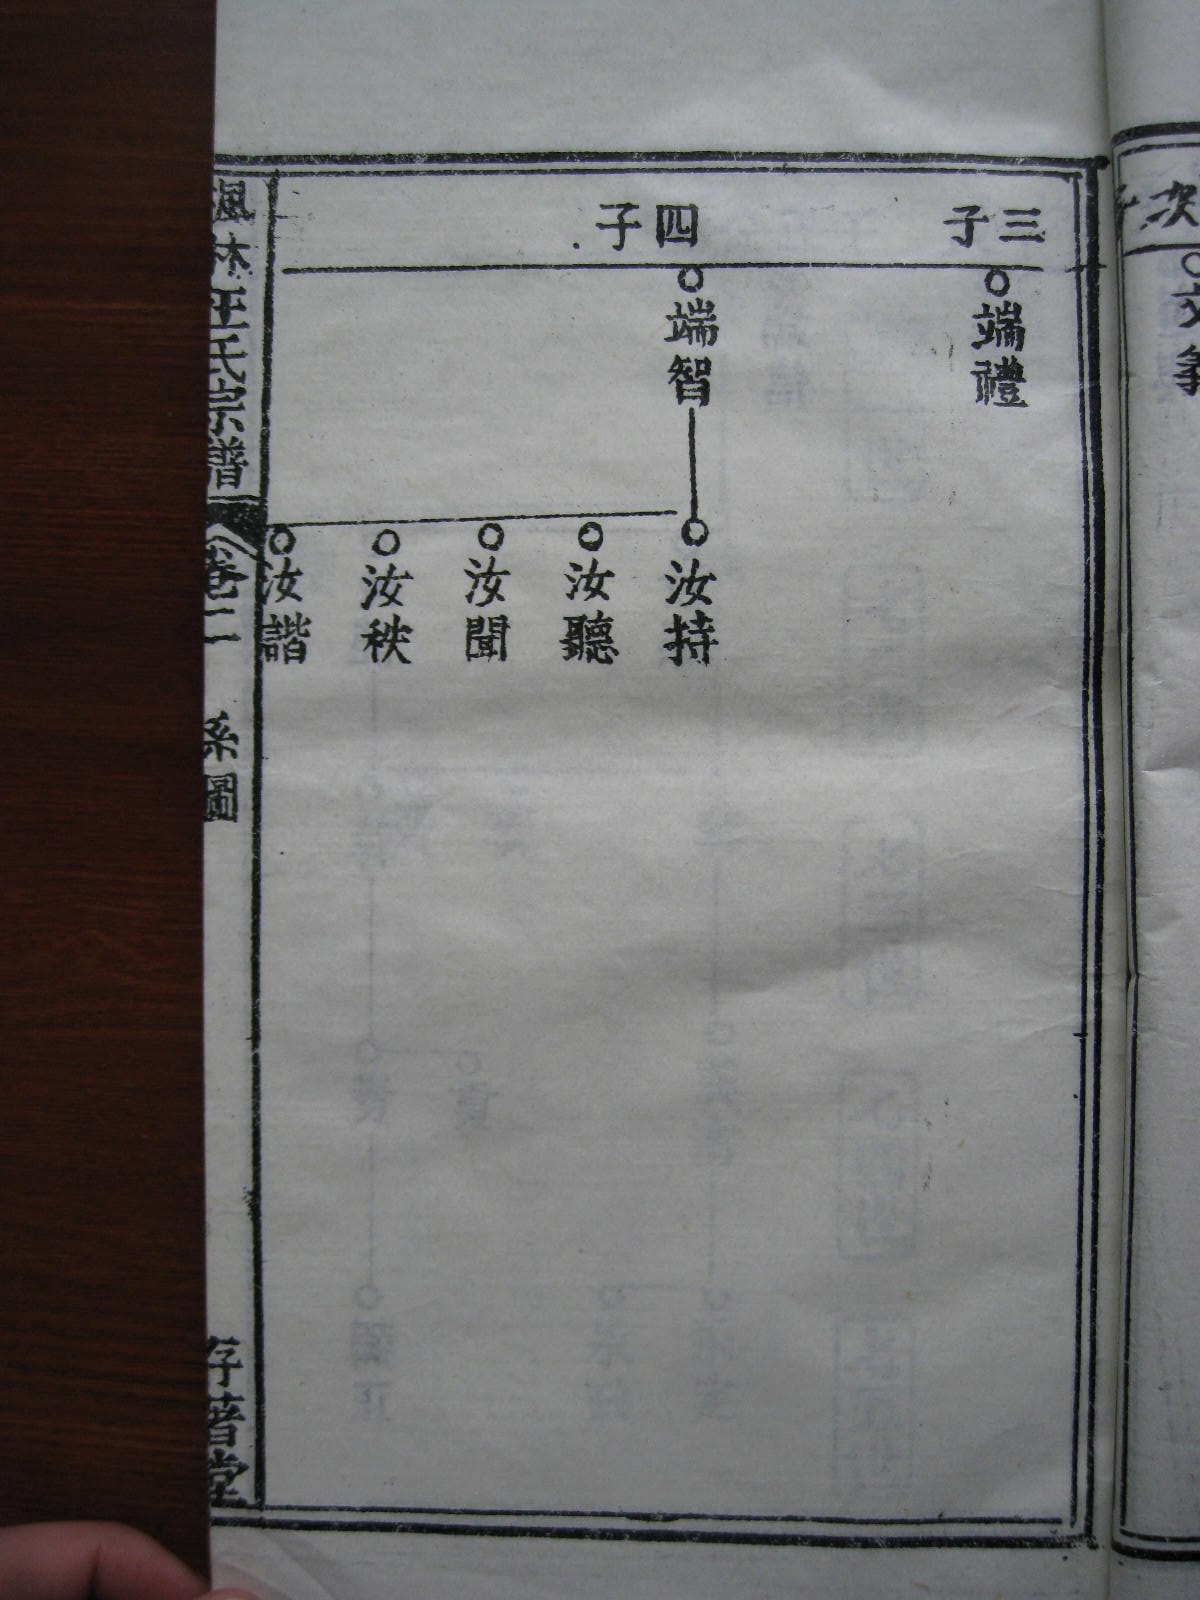 次子
三子
四子
端禮
端智
汝持
汝聽
汝聞
汝秩
汝諧
楓林王氏宗譜
卷二
系圖
存著堂